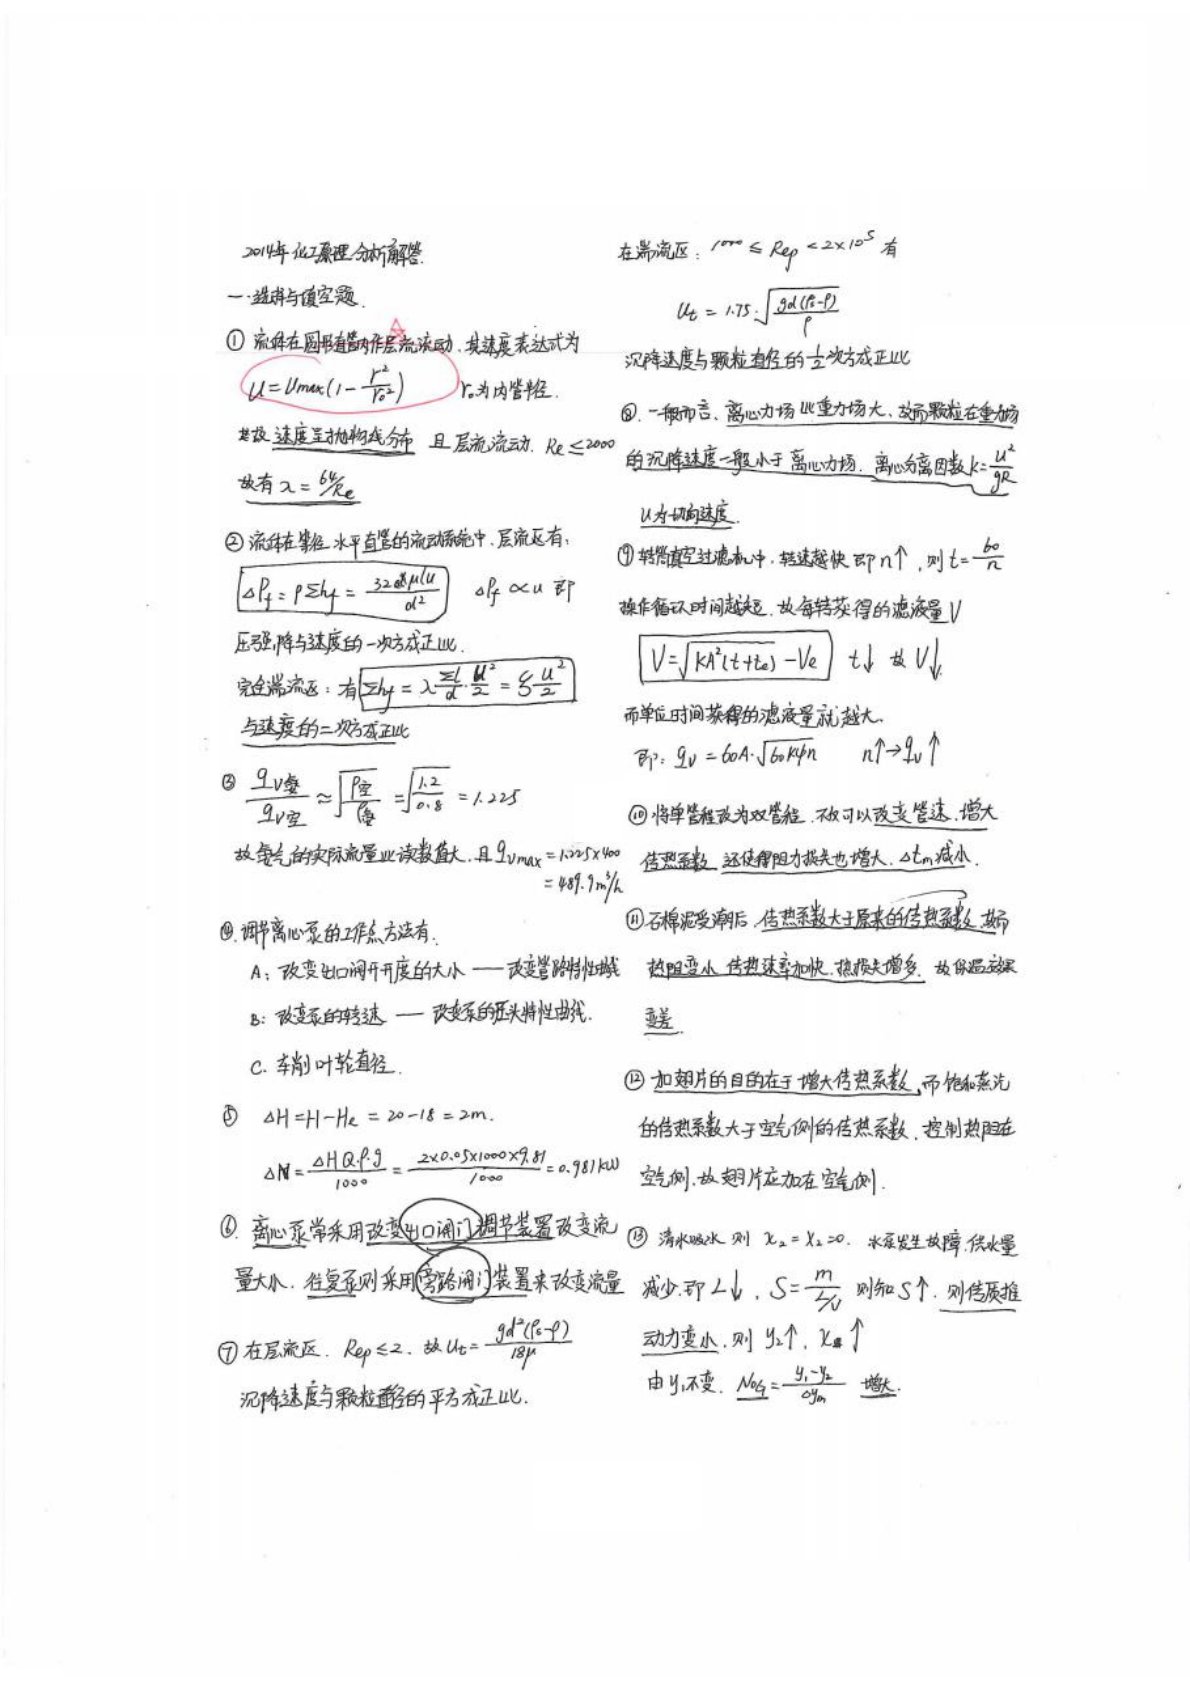 2014年化工原理分析解答.
一.选择与填空题.
① 流体在圆形直管内作层流流动，其速度表达式为
u=umax(1-r²/r₀²) r₀为内管半径.
故 速度呈抛物线分布 且层流流动. Re≤2000
故有 λ=64/Re
② 流体在等径水平直管的流动系统中. 层流区有:
ΔPf=ρΣhf=32μlu/d² ΔPf∝u 即
压强降与速度的一次方成正比.
完全湍流区: 有 Σhf=λ Σl/d·u²/2=ξ u²/2
与速度的二次方成正比
③ qv氨/qv空≈√(ρ空/ρ氨)=√(1.2/0.8)=1.225
故氨气的实际流量比读数值大. 且qvmax=1.225×400
=489.9m³/h
④.调节离心泵的工作点方法有.
A: 改变出口阀开开度的大小 —— 改变管路特性曲线
B: 改变泵的转速 —— 改变泵的压头特性曲线.
C. 车削叶轮直径.
⑤ ΔH=H-He=20-18=2m.
ΔN=ΔHQ.ρ.g/1000=2×0.05×1000×9.81/1000=0.981kW
⑥. 离心泵常采用改变出口阀门调节装置改变流
量大小. 往复泵则采用旁路阀门装置来改变流量
⑦ 在层流区. Rep≤2. 故ut=gd²(ρs-ρ)/18μ
沉降速度与颗粒直径的平方成正比.
在湍流区: 1000≤Rep<2×10⁵ 有
ut=1.75·√(gd(ρs-ρ)/ρ)
沉降速度与颗粒直径的½次方成正比
⑧. 一般而言、离心力场比重力场大、故而颗粒在重力场
的沉降速度一般小于离心力场. 离心分离因数k=u²/gR
u为切向速度.
⑨ 转筒真空过滤机中. 转速越快即n↑, 则t=60/n
操作循环时间越短. 故每转获得的滤液量V
V=√(KA²(t+te))-Ve t↓ 故V↓.
而单位时间获得的滤液量就越大.
即: qv=60A·√(60Kφn) n↑→qv↑
⑩ 将单管程改为双管程. 不仅可以改变管速. 增大
传热系数 还使得阻力损失也增大. Δtm减小.
⑪ 石棉泥受潮后. 传热系数大于原来的传热系数. 故而
热阻变小 传热速率加快. 热损失增多. 故保温效果
变差.
⑫ 加翅片的目的在于增大传热系数, 而饱和蒸汽
的传热系数大于空气侧的传热系数. 控制热阻在
空气侧. 故翅片应加在空气侧.
⑬ 清水吸收 则 x₂=X₂=0. 水泵发生故障. 供水量
减少. 即L↓. S=m/(L/V) 则知S↑. 则传质推
动力变小. 则y₂↑. x↑
由y₁不变. NOG=(y₁-y₂)/Δym 增大.